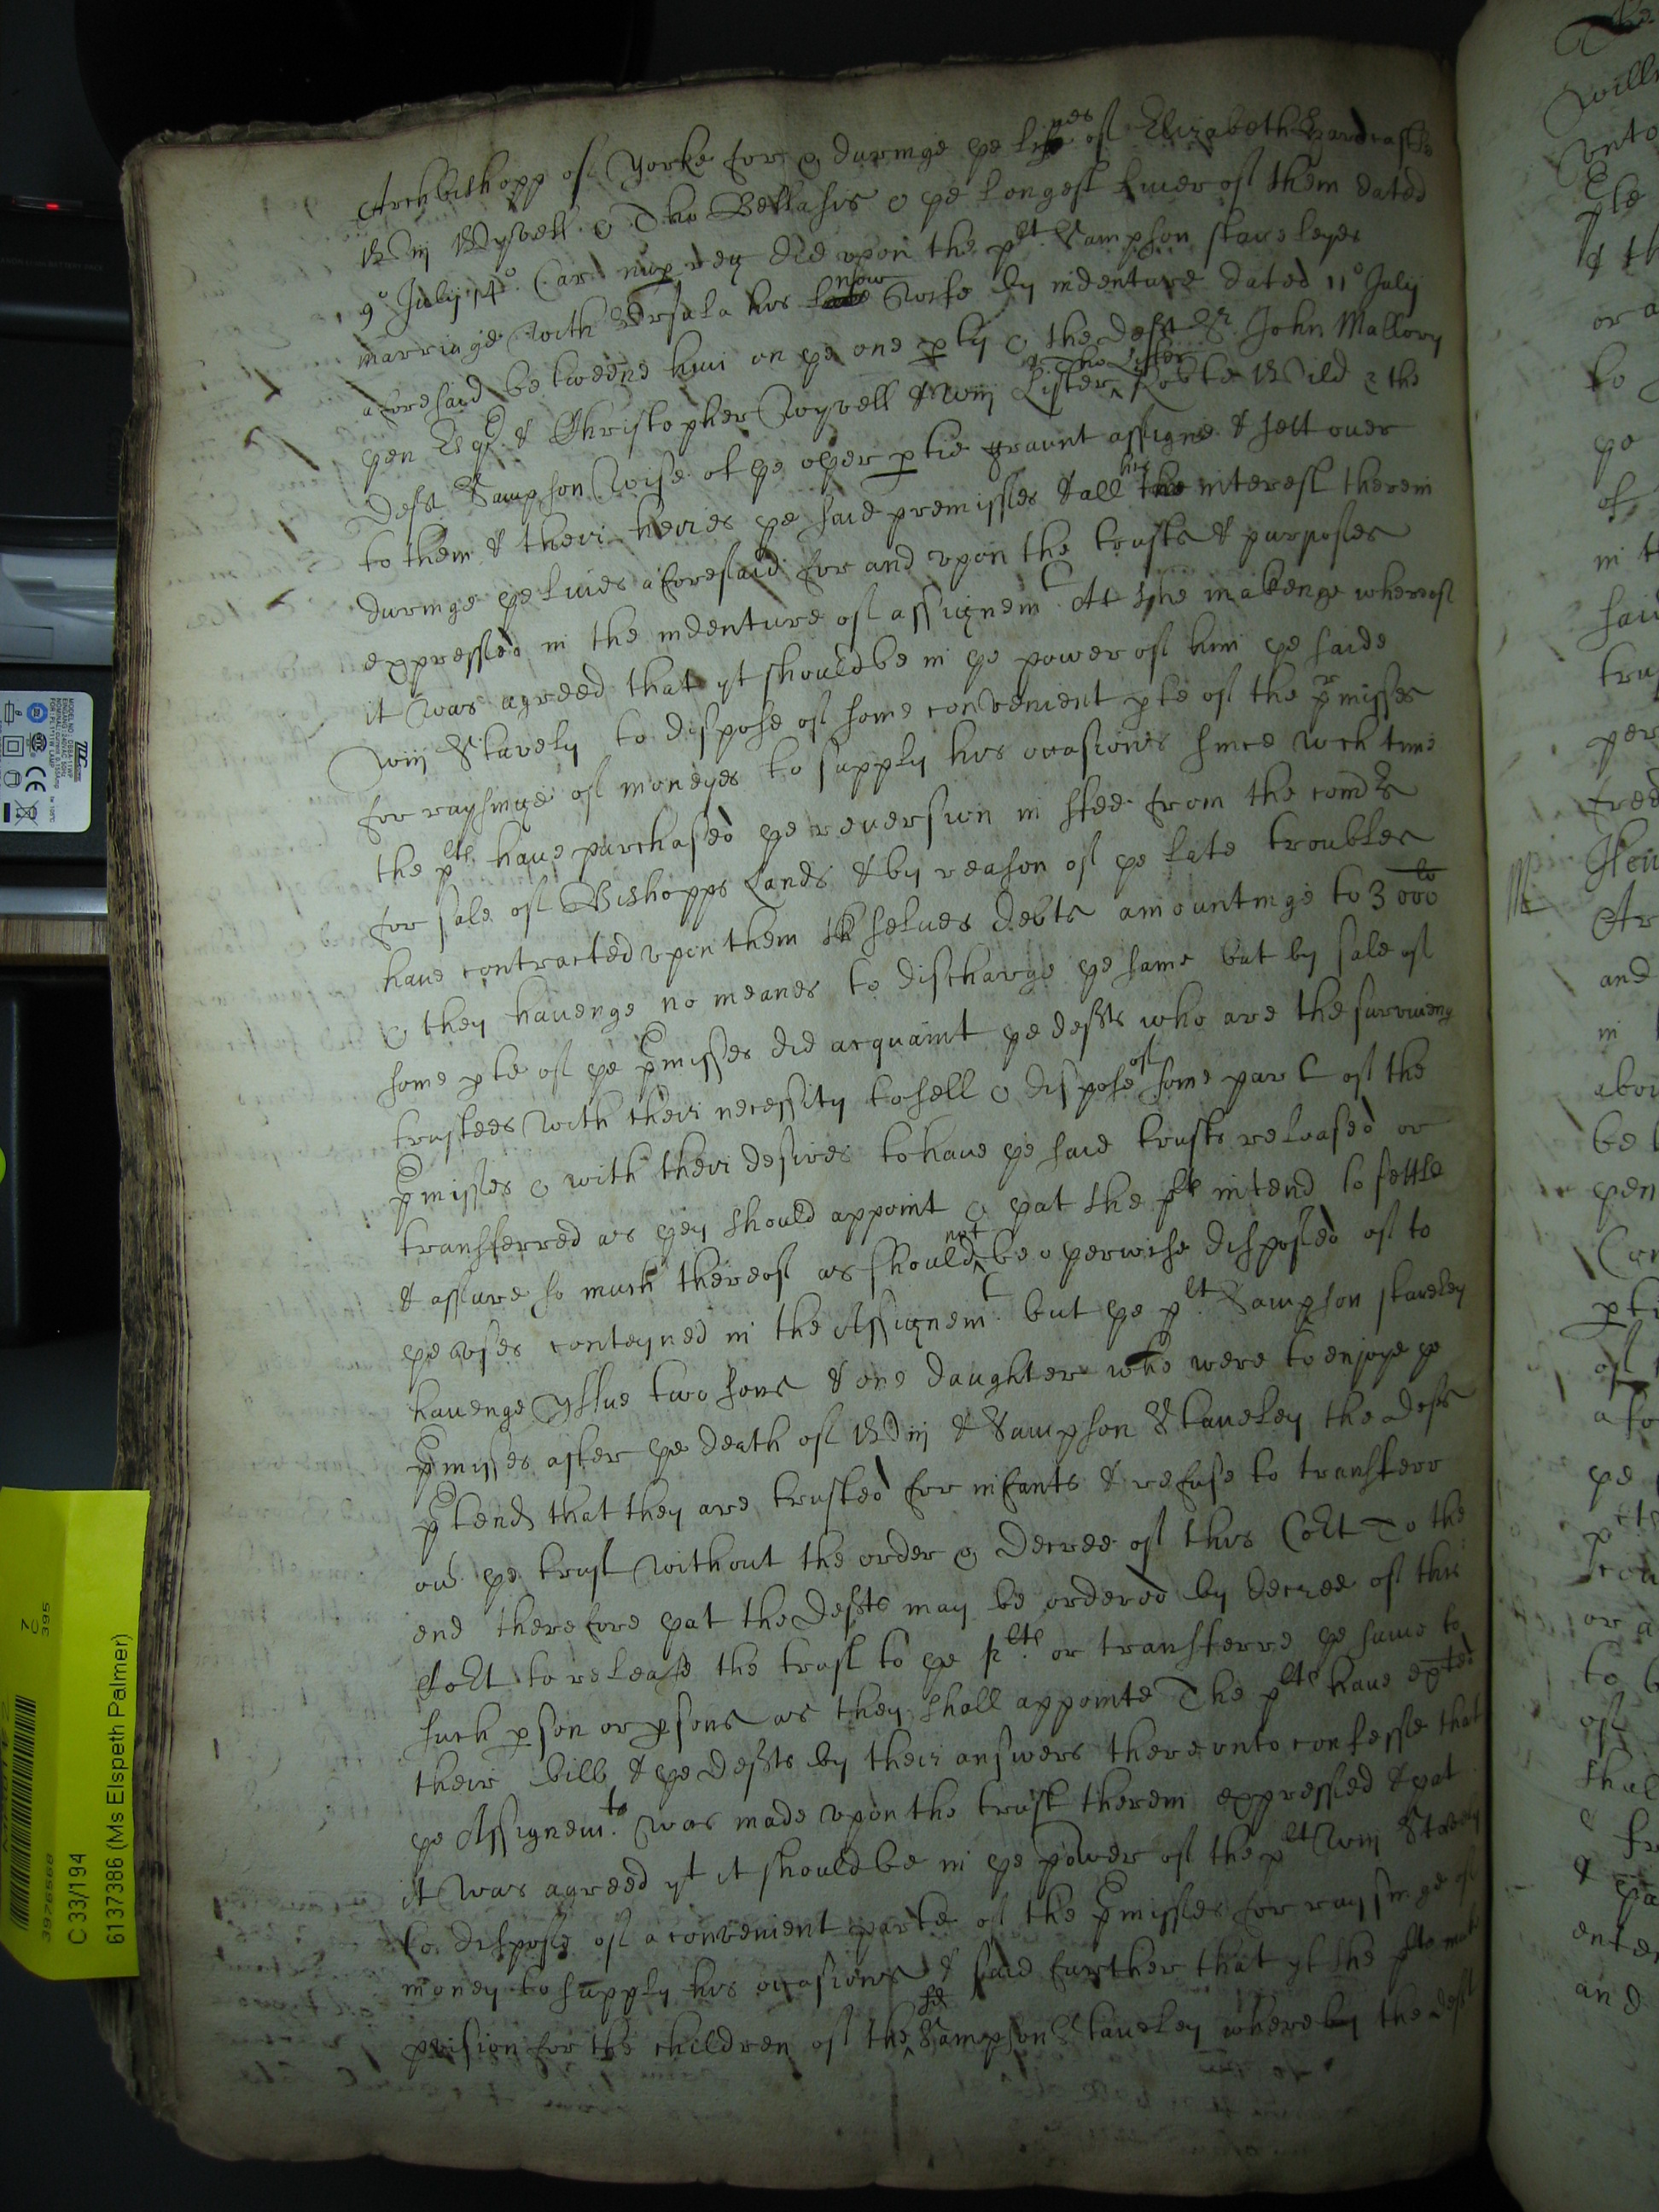 Archbishopp of Yorke for & duringe ye lives of Elizabeth Hardcastle
Wm Wyvell & Tho Bellasis & ye longest liver of them dated
9o July 14o Car nup rex did upon the plt Sampson staveleyes
marriage with Ursula his now Wife by indenture dated 11o July
aforesaid betweene him on ye one pty & the deft Sr John Mallory
yen Esqr & Christopher Wyvell & Wm Lister & Tho Lister Robte Wild & the
deft Sampson Wise of ye oyer ptie graunt assigne & sett over
to them & their heires ye said premisses & all his interest therein
duringe ye lives aforesaid for and upon the trusts & purposes
expressed in the indenture of assignemt At the makenge whereof
it was agreed that yt should be in ye power of him ye saide
Wm Stavely to dispose of some convenient pte of the prmisses
for raysinge of moneyes to supply his occasions since wch time
the plts have purchased ye reversion in ffee from the comrs
for sale of Bishopps Lands & by reason of ye late troubles
have contracted upon them selves debts amountinge to 3000li
& they havenge no meanes to discharge ye same but by sale of
some pte of ye pmisses did acquaint ye defts who are the surviveing
trustees with their necessity to sell & dispose of some part of the
pmisses & with their desires to have ye said trusts released or
transferred as yey should appoint & yat the plts intend to settle
& assure so much thereof as should not be oyerwise disposed of to
ye uses conteyned in the Assignemt but ye plt Sampson staveley
havenge yssue two sons & one daughter who were to enjoye ye
pmisses after ye death of Wm & Sampson Staveley the defts
ptend that they are trusted for infants & refuse to transferr
our ye trust without the order & decree of this Cort To the
end therefore yat the defts may be ordered by decree of this
Cort to release the trust to ye plts or transferre ye same to
such pson or psons as they shall appointe The plts have exted
their bill & ye defts by their answers thereunto confesse that
ye Assignemts was made upon the trust therein expressed & yat
it was agreed yt it should be in ye power of the plt Wm Stavely
to dispose of a convenient parte of the pmisses for raysinge of
money to supply his occasions & said further that yf the plts make
pvision for the children of the sd Sampson Staveley whereby the deft
C 33/194
6137386 (Ms Elspeth Palmer)
39765568